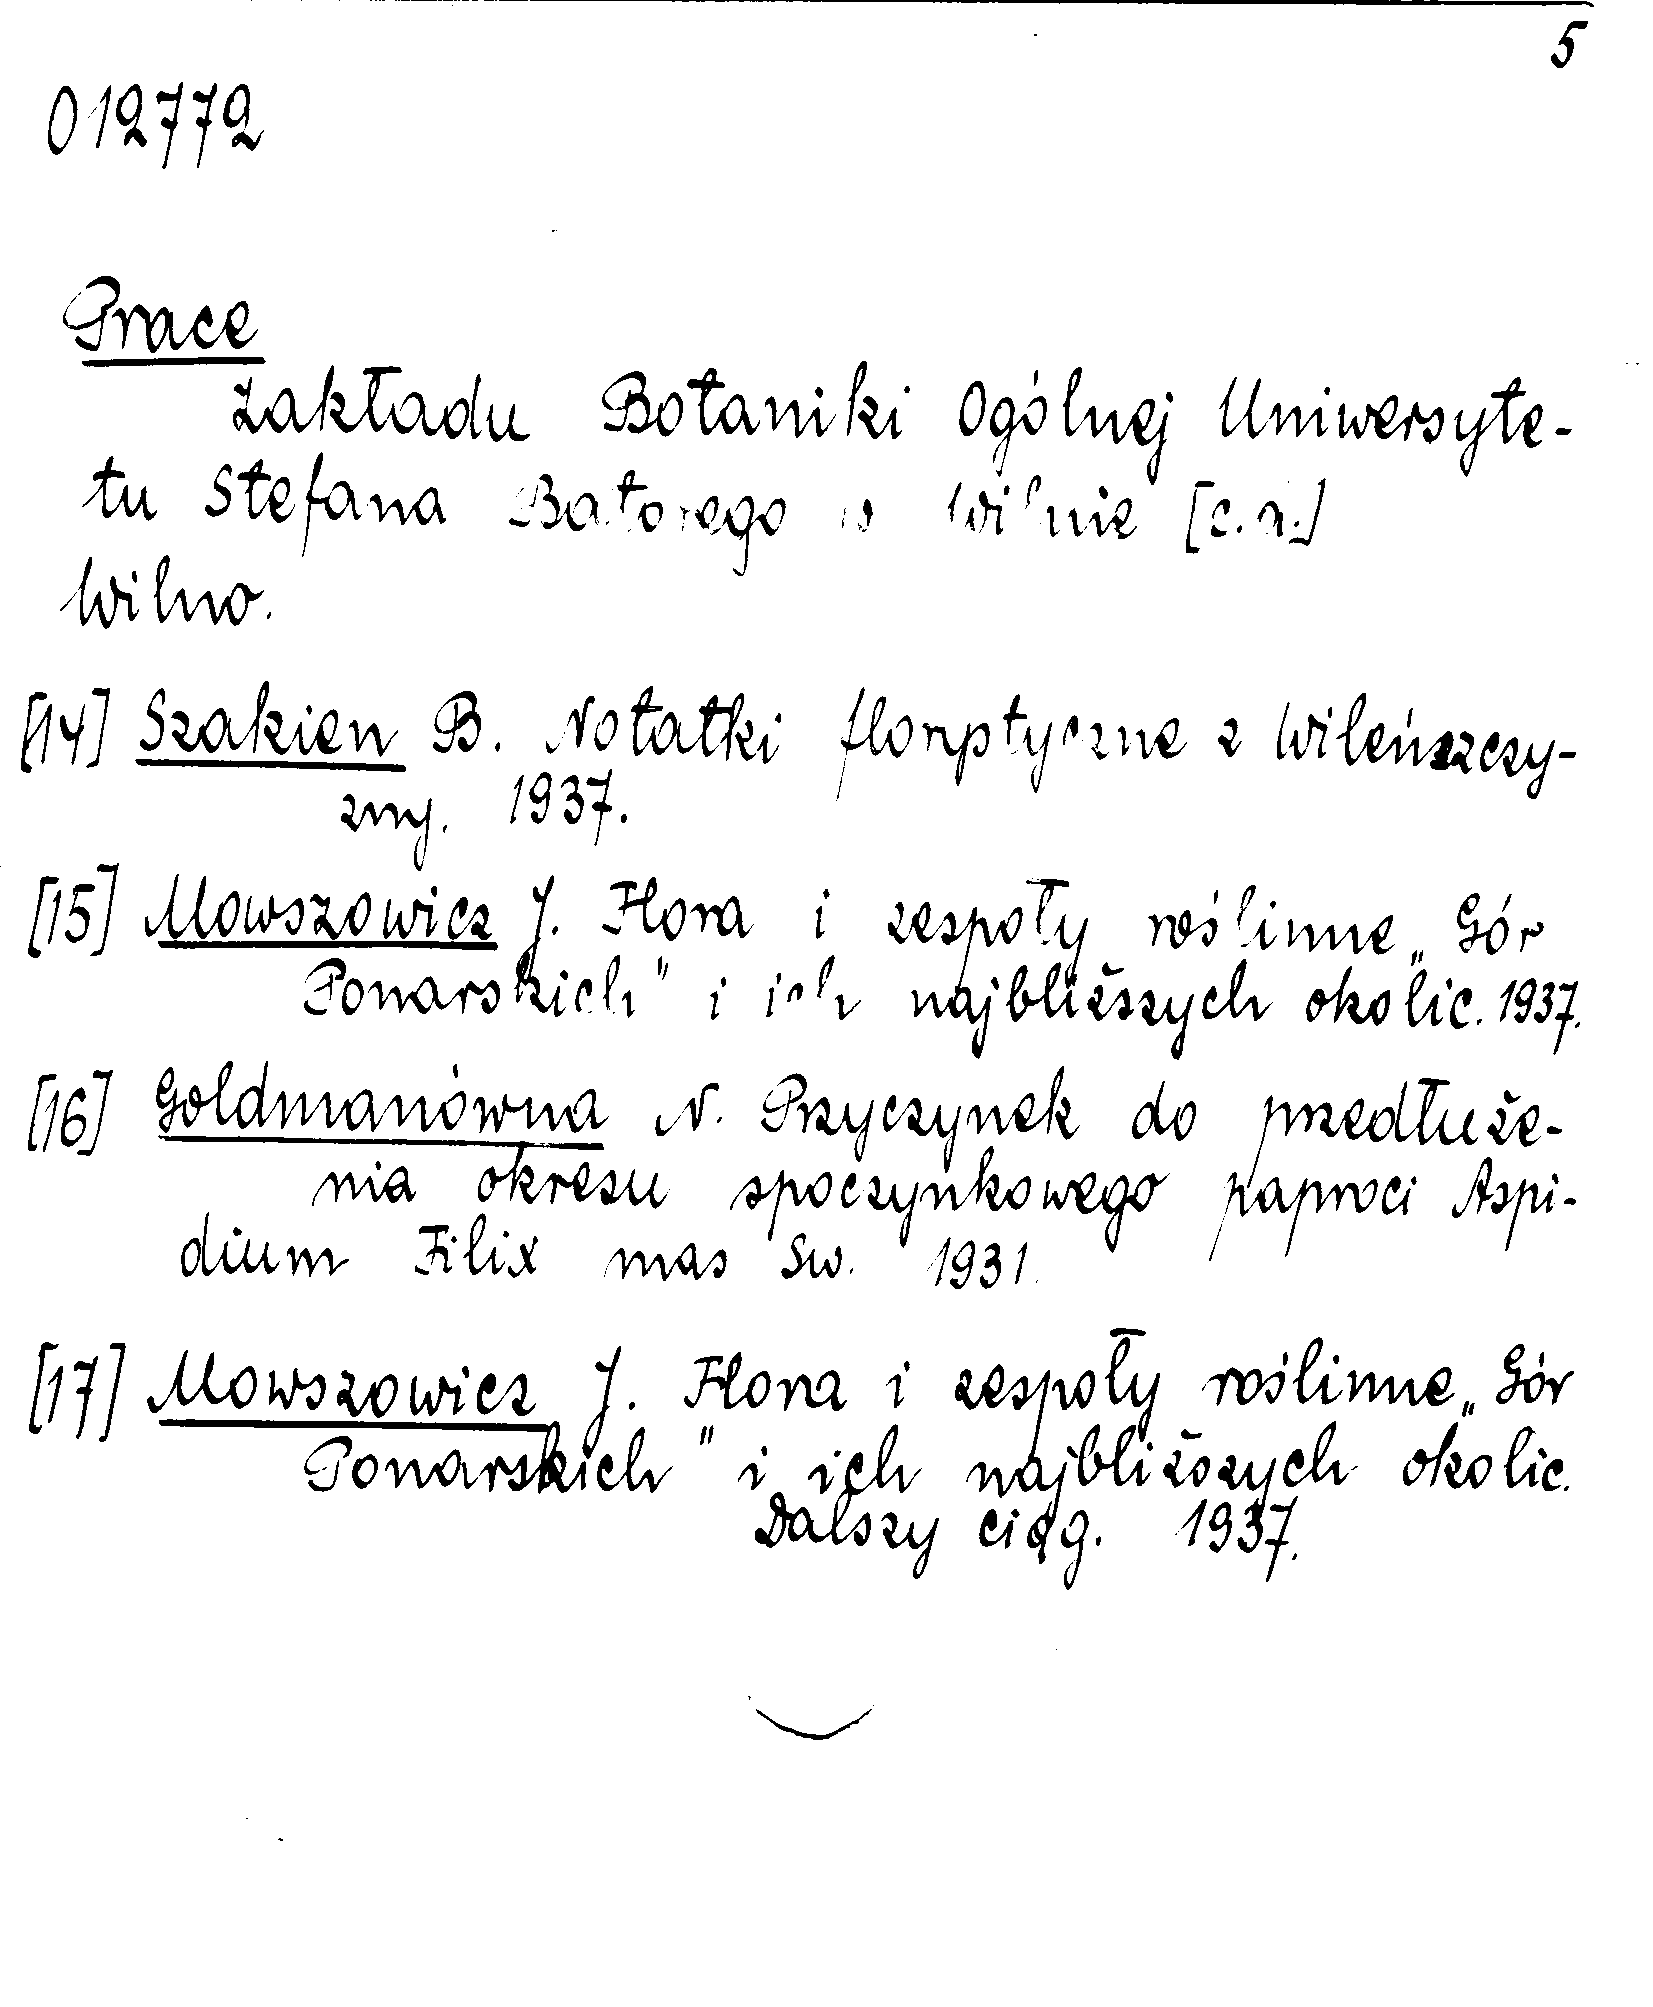 5
012772
Prace
Zakładu Botaniki Ogólnej Uniwersyte-
tu Stefana Batorego w Wilnie
Wilno.
[14] Szakien B. Notatki z Wileńszczy-
zny. 1937.
[15] Mowszowicz J. Flora i zespoły roślinne „Gór
Ponarskich" i ich najbliższych okolic. 1937.
[16] Goldmanówna N. Przyczynek do przedłuże-
nia okresu spoczynkowego paproci Aspi-
dium Filix mas Sw. 1931.
[17] Mowszowicz J. Flora i zespoły roślinne „Gór
Ponarskich" i ich najbliższych okolic.
Dalszy ciąg. 1937.